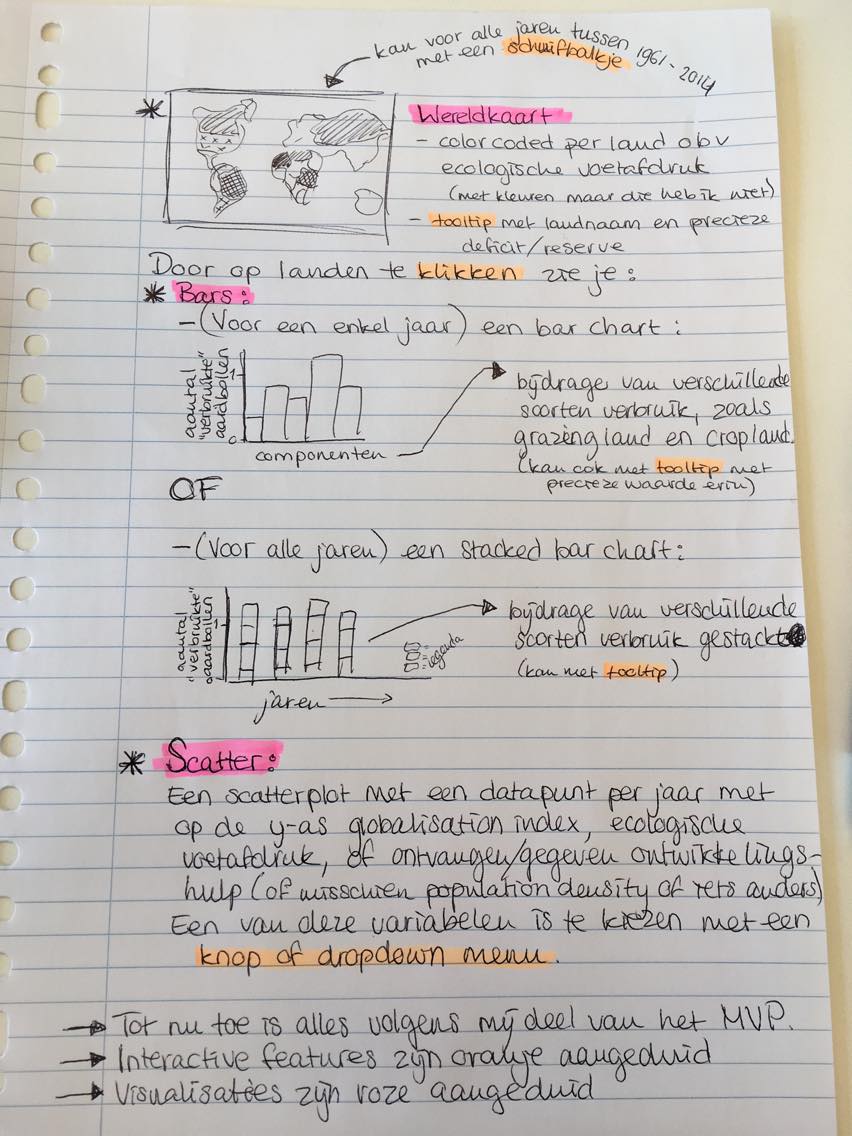 kan voor alle jaren tussen 1961-2014
met een schuifbalkje
* Wereldkaart
- colorcoded per land obv
ecologische voetafdruk
(met kleuren maar die heb ik niet)
- tooltip met landnaam en precieze
deficit/reserve
Door op landen te klikken zie je:
* Bars:
- (Voor een enkel jaar) een bar chart:
aantal
"verbruikte"
aardbollen
1
0
componenten
bijdrage van verschillende
soorten verbruik, zoals
grazingland en cropland.
(kan ook met tooltip met
precieze waarde erin)
OF
- (Voor alle jaren) een stacked bar chart:
aantal
"verbruikte"
aardbollen
1
jaren
legenda
bijdrage van verschillende
soorten verbruik gestackt
(kan met tooltip)
* Scatter:
Een scatterplot met een datapunt per jaar met
op de y-as globalisation index, ecologische
voetafdruk, of ontvangen/gegeven ontwikkelings-
hulp (of misschien population density of iets anders)
Een van deze variabelen is te kiezen met een
knop of dropdown menu.
→ Tot nu toe is alles volgens mij deel van het MVP.
→ Interactive features zijn oranje aangeduid
→ Visualisaties zijn roze aangeduid